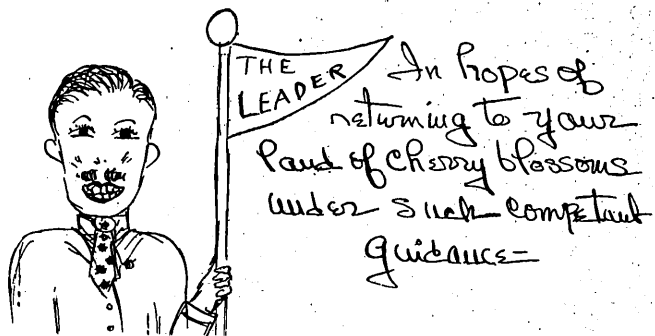 THE
LEADER
In hopes of
returning to your
land of cherry blossoms
under such competant
guidance-